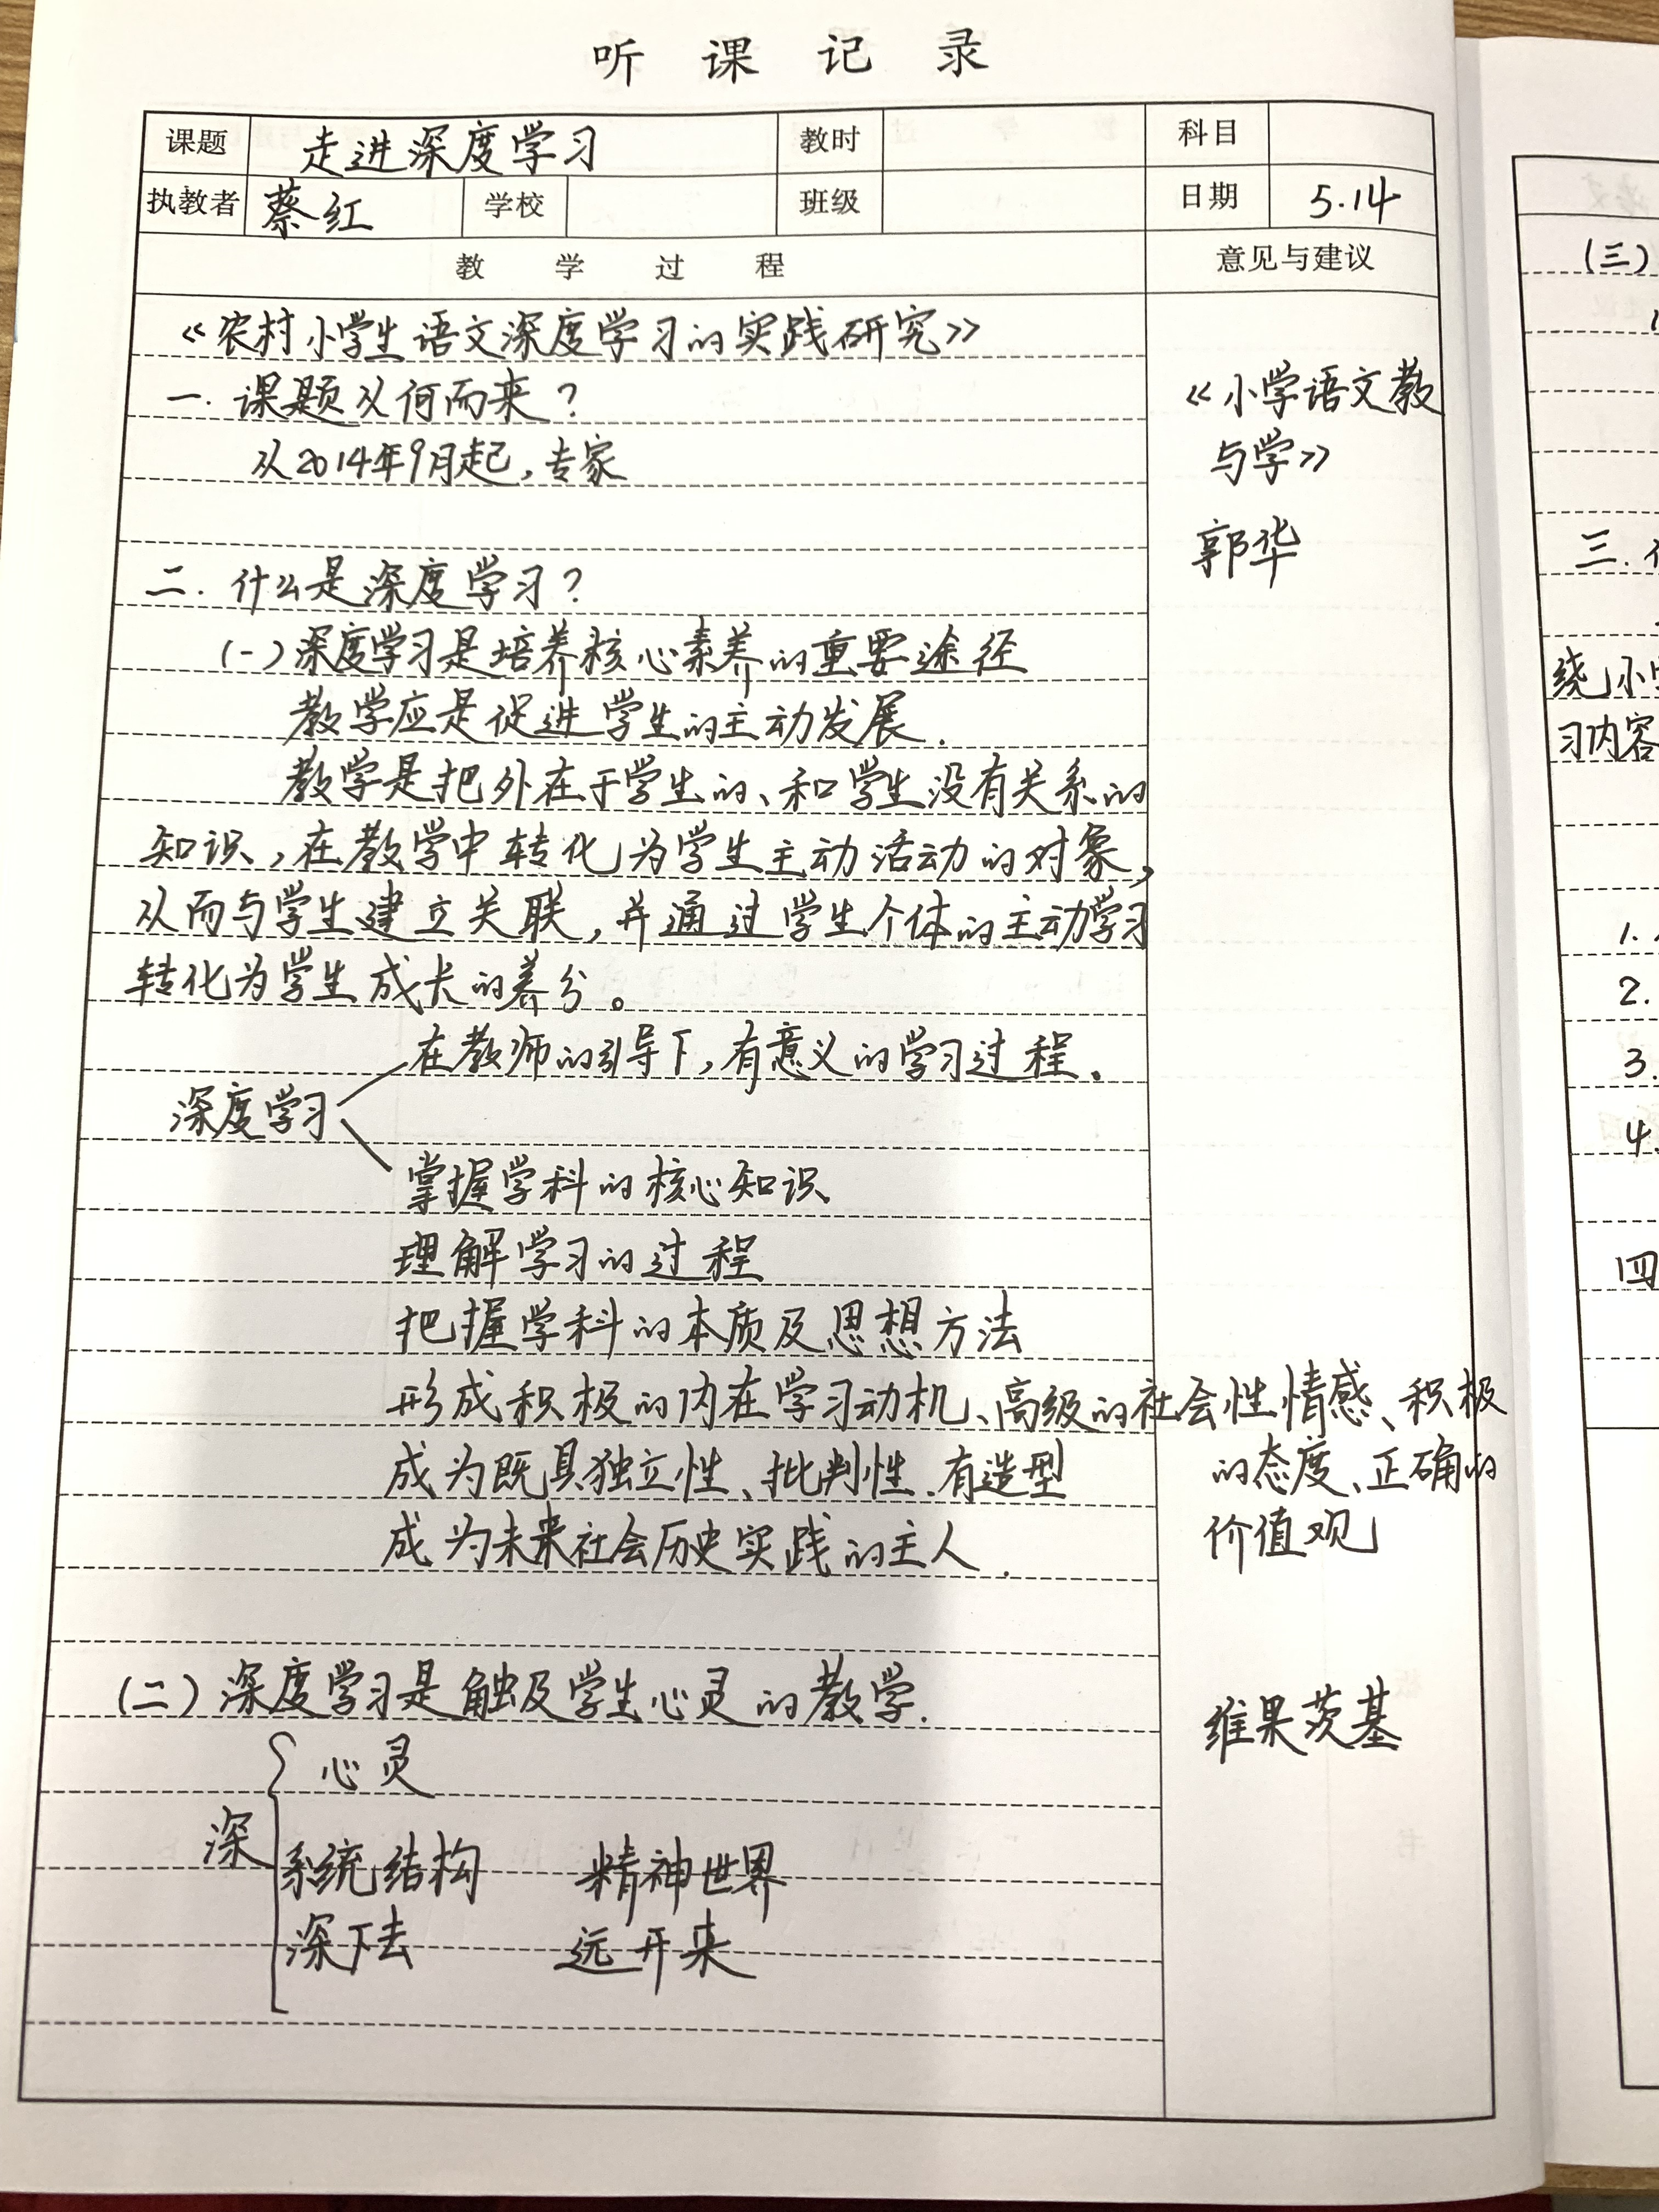 听课记录
课题 走进深度学习 教时 科目
执教者 蔡红 学校 班级 日期 5.14
教学过程 意见与建议
《农村小学生语文深度学习的实践研究》
一. 课题从何而来?
《小学语文教
从2014年9月起,专家
与学》
郭华
二. 什么是深度学习?
(一)深度学习是培养核心素养的重要途径
教学应是促进学生的主动发展.
教学是把外在于学生的、和学生没有关系的
知识,在教学中转化为学生主动活动的对象,
从而与学生建立关联,并通过学生个体的主动学习
转化为学生成长的养分。
在教师的引导下,有意义的学习过程.
深度学习
掌握学科的核心知识
理解学习的过程
把握学科的本质及思想方法
形成积极的内在学习动机、高级的社会性情感、积极
的态度、正确的
成为既具独立性、批判性.有造型
价值观
成为未来社会历史实践的主人.
(二)深度学习是触及学生心灵的教学.
维果茨基
心灵
深
系统结构 精神世界
深下去 远开来
(三)
三.
绕小学
习内容
1.
2.
3.
4.
四